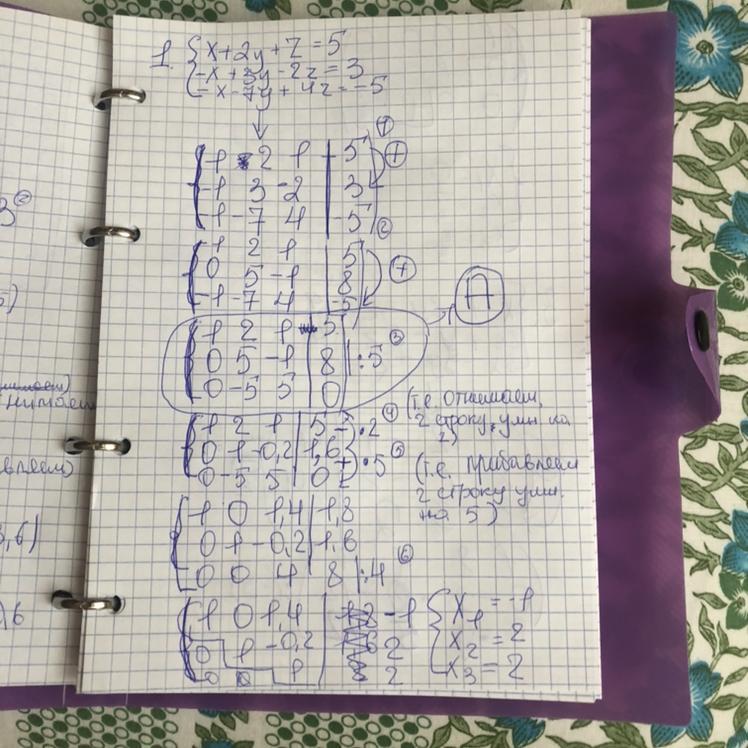 1. { x+2y+z=5
-x+3y-2z=3
-x-7y+4z=-5
↓
1 2 1 | 5 ① +
-1 3 -2 | 3
-1 -7 4 | -5 ②
1 2 1 | 5
0 5 -1 | 8 +
-1 -7 4 | -5
1 2 1 | 5
0 5 -1 | 8 | :5 ③
0 -5 5 | 0
A
1 2 1 | 5 - ·2 ④
0 1 -0,2 | 1,6
0 -5 5 | 0 + ·5 ⑤
(т.е. отнимаем
2 строку, умн на
2)
(т.е. прибавляем
2 строку умн.
на 5)
1 0 1,4 | 1,8
0 1 -0,2 | 1,6
0 0 4 | 8 | :4 ⑥
1 0 1,4 | -1
0 1 -0,2 | 2
0 0 1 | 2
{ x1 = -1
x2 = 2
x3 = 2
3 ②
5)
нимаем
вляем)
3,6)
,6